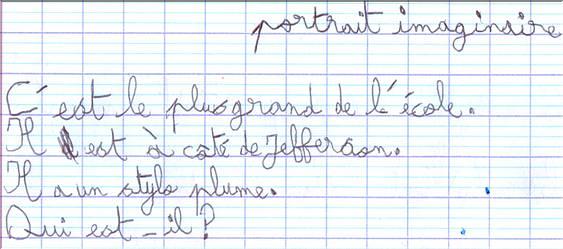 portrait imaginaire
C'est le plus grand de l'école.
Il est à côté de Jefferson.
Il a un stylo plume.
Qui est-il ?